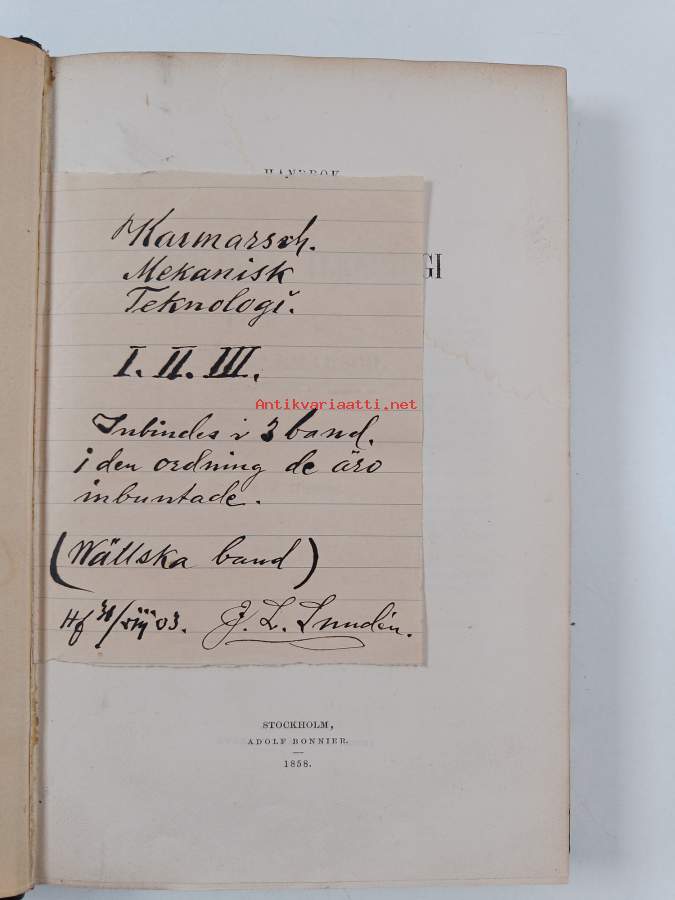 HANDBOK
GI
Karmarsch.
Mekanisk
Teknologi.
I. II. III.
Antikvariaatti.net
Inbindes i 3 band.
i den ordning de äro
inbuntade.
(Wällska band)
Hf 31/VIII 03. J. L.
STOCKHOLM,
ADOLF BONNIER.
1858.